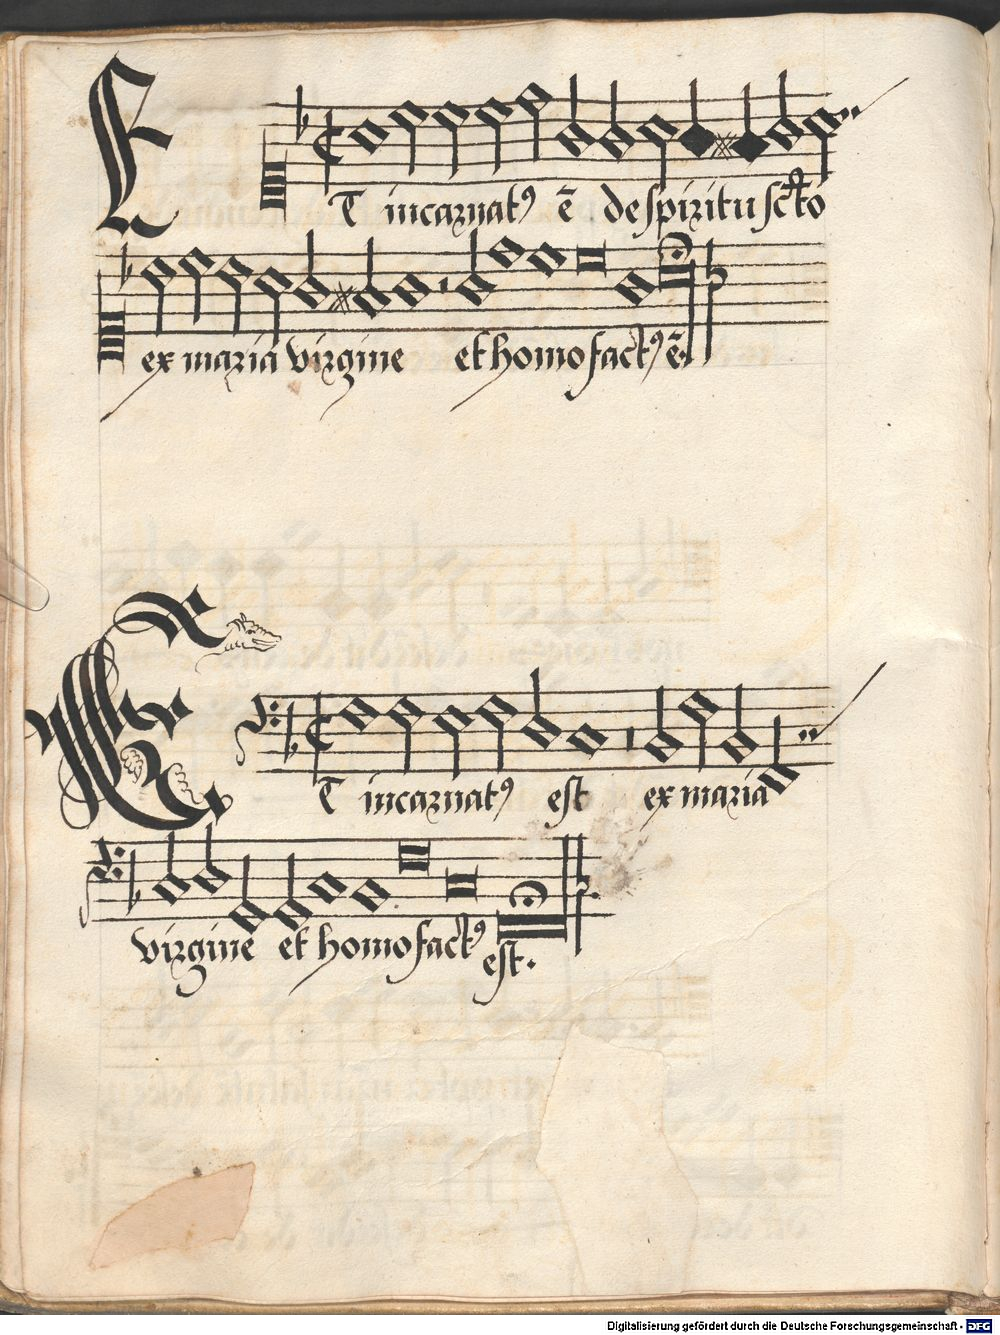 ET incarnatꝰ ē de spiritu sc̄to
ex maria virgine et homo factꝰ ē.
ET incarnatꝰ est ex maria
virgine et homo factꝰ est.
Digitalisierung gefördert durch die Deutsche Forschungsgemeinschaft - DFG